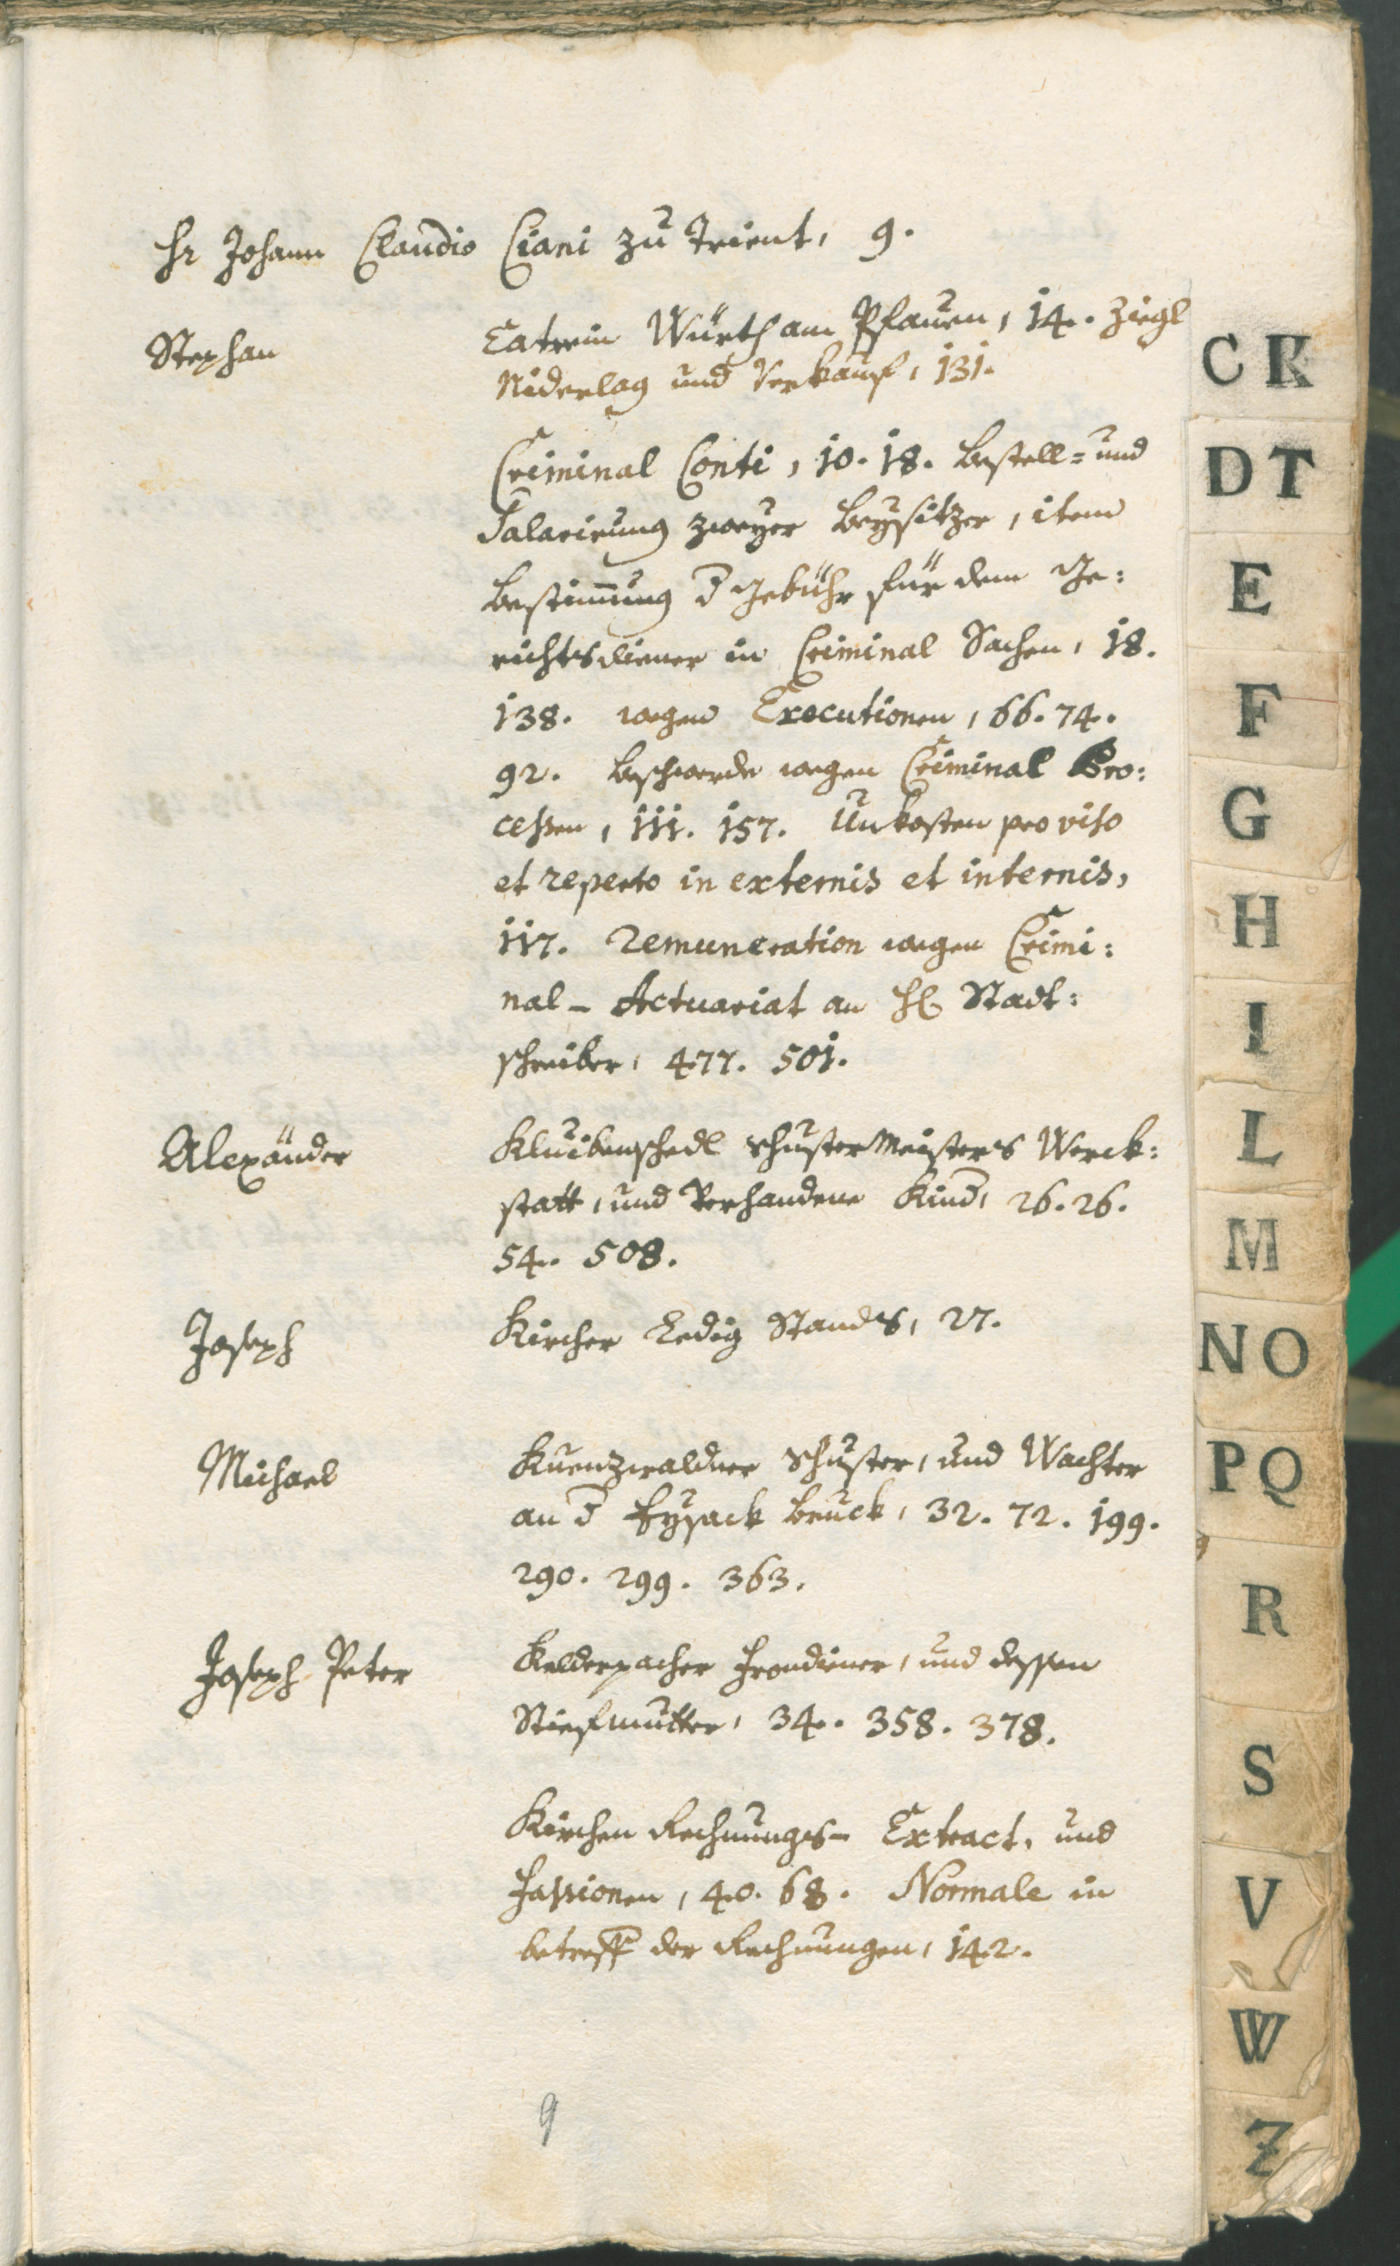 Hr Johann Claudio Ciani zu Trient, 9.
Stephan Catrein Würth am Pfauen, 14. Ziegl
Niderlag und Verkauf, 131.
Criminal Conti, 10. 18. Bestell= und
Salarirung zweyer Beysitzer, item
Bestim̅ung d Gebühr für dem Ge:
richtsdiener in Criminal Sachen, 18.
138. wegen Executionen, 66. 74.
92. Beschwerde wegen Criminal Pro:
cessen, 111. 157. Unkosten pro viso
et reperto in externis et internis,
117. Remuneration wegen Crimi:
nal - Actuariat an H. Stadt:
schreiber, 477. 501.
Alexander Kluibenschedl Schuster Meisters Werck:
statt, und Verhandene Kind, 26. 26.
54. 508.
Joseph Kircher Ledig Stands, 27.
Michael Kuenzwaldner Schuster, und Wachter
an d Eysack Bruck, 32. 72. 199.
290. 299. 363.
Joseph Peter Kelderpacher Frondiener, und dessen
Stiefmutter, 34. 358. 378.
Kirchen Rechnungs- Extract, und
Fassionen, 40. 68. Normale in
betreff der Rechnungen, 142.
9
C K
D T
E
F
G
H
I
L
M
N O
P Q
R
S
V
W
Z